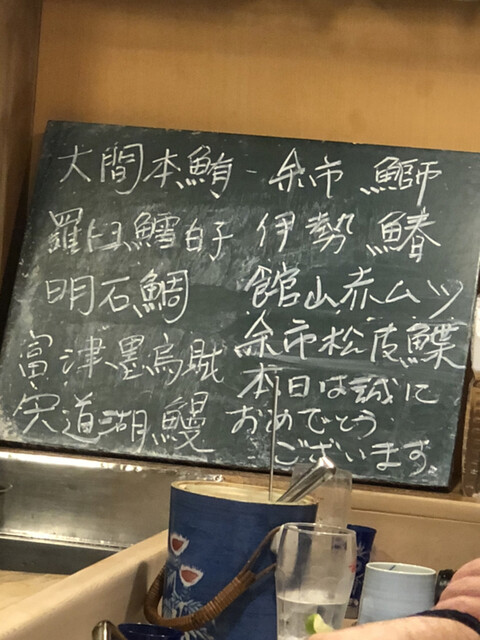 大間本鮪
羅臼鱈白子
明石鯛
富津墨烏賊
宍道湖鰻
余市 鰤
伊勢 鰆
館山赤ムツ
余市松皮鰈
本日は誠に
おめでとう
ございます。